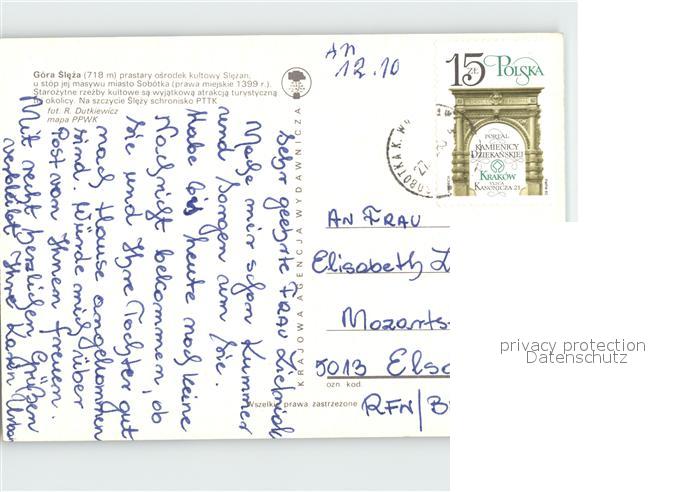 Góra Ślęża (718 m) prastary ośrodek kultowy Ślężan,
u stóp jej masywu miasto Sobótka (prawa miejskie 1399 r.).
Starożytne rzeźby kultowe są wyjątkową atrakcją turystyczną
okolicy. Na szczycie Ślęży schronisko PTTK
fot. R. Dutkiewicz
mapa PPWK
KRAJOWA AGENCJA WYDAWNICZA
An
12.10
15 ZŁ POLSKA
PORTAL
KAMIENICY
DZIEKAŃSKIEJ
KRAKÓW
ULICA
KANONICZA 21
SOBÓTKA K. W
Sehr geehrte Frau
Mache mir schon Kummer
und Sorgen um Sie.
Habe bis heute noch keine
Nachricht bekommen, ob
Sie und Ihre Tochter gut
nach Hause angekommen
sind. Würde mich über
Post von Ihnen freuen.
Mit recht herzlichen Grüßen
verbleibt Ihre Karin
AN FRAU
Elisabeth L
Mozarts-
5013 Elsd
ozn. kod.
RFN/B
Wszelkie prawa zastrzeżone
privacy protection
Datenschutz